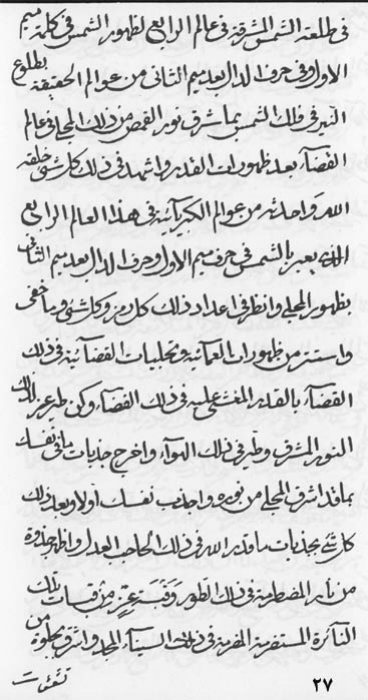 فی طلعة الشمس المشرقة فی عالم الرابع لظهور الشمس فی کلمة میم
الاول و فی حرف الدال بعد میم الثانی من عوالم الحقیقة بطلوع
النیر فی فلک الشمس بما شرق نور القمص من ذلک المجلی فی عالم
القضآء بعد ظهورات القدر و اشهد فی ذلک کل شئ خلقه
الله و احدثه من عوالم الکبریآئیة فی هذا العالم الرابع
یعبر بالشمس فی حرف میم الاول و حرف الدال بعد میم الثانی
بظهور المجلی و انظر فی اعداد ذلک کل رمز و کل شئ و ما خفی
و استتر من ظهورات العمائیة و تجلیات القضآئیة فی ذلک
القضآء بالقدر علیه فی ذلک القضآء و کن طیر عز لذلک
النور المشرق و طیر فی ذلک الهوآء و اخرج جذبات ما فی نفسک
بما قد اشرق المجلی من نوره و اجذب نفسک اولا و بعد ذلک
کل شئ بجذبات ما قدر الله فی ذلک الحاجب العدل و اظهر جذوة
من نار المضطرمة فی ذلک الطور و قبسة عز من قبسات تلک
النآئرة المستسرة فی ذلک السینآء المجد و اشرق بجلوة من
نفس
۲۷